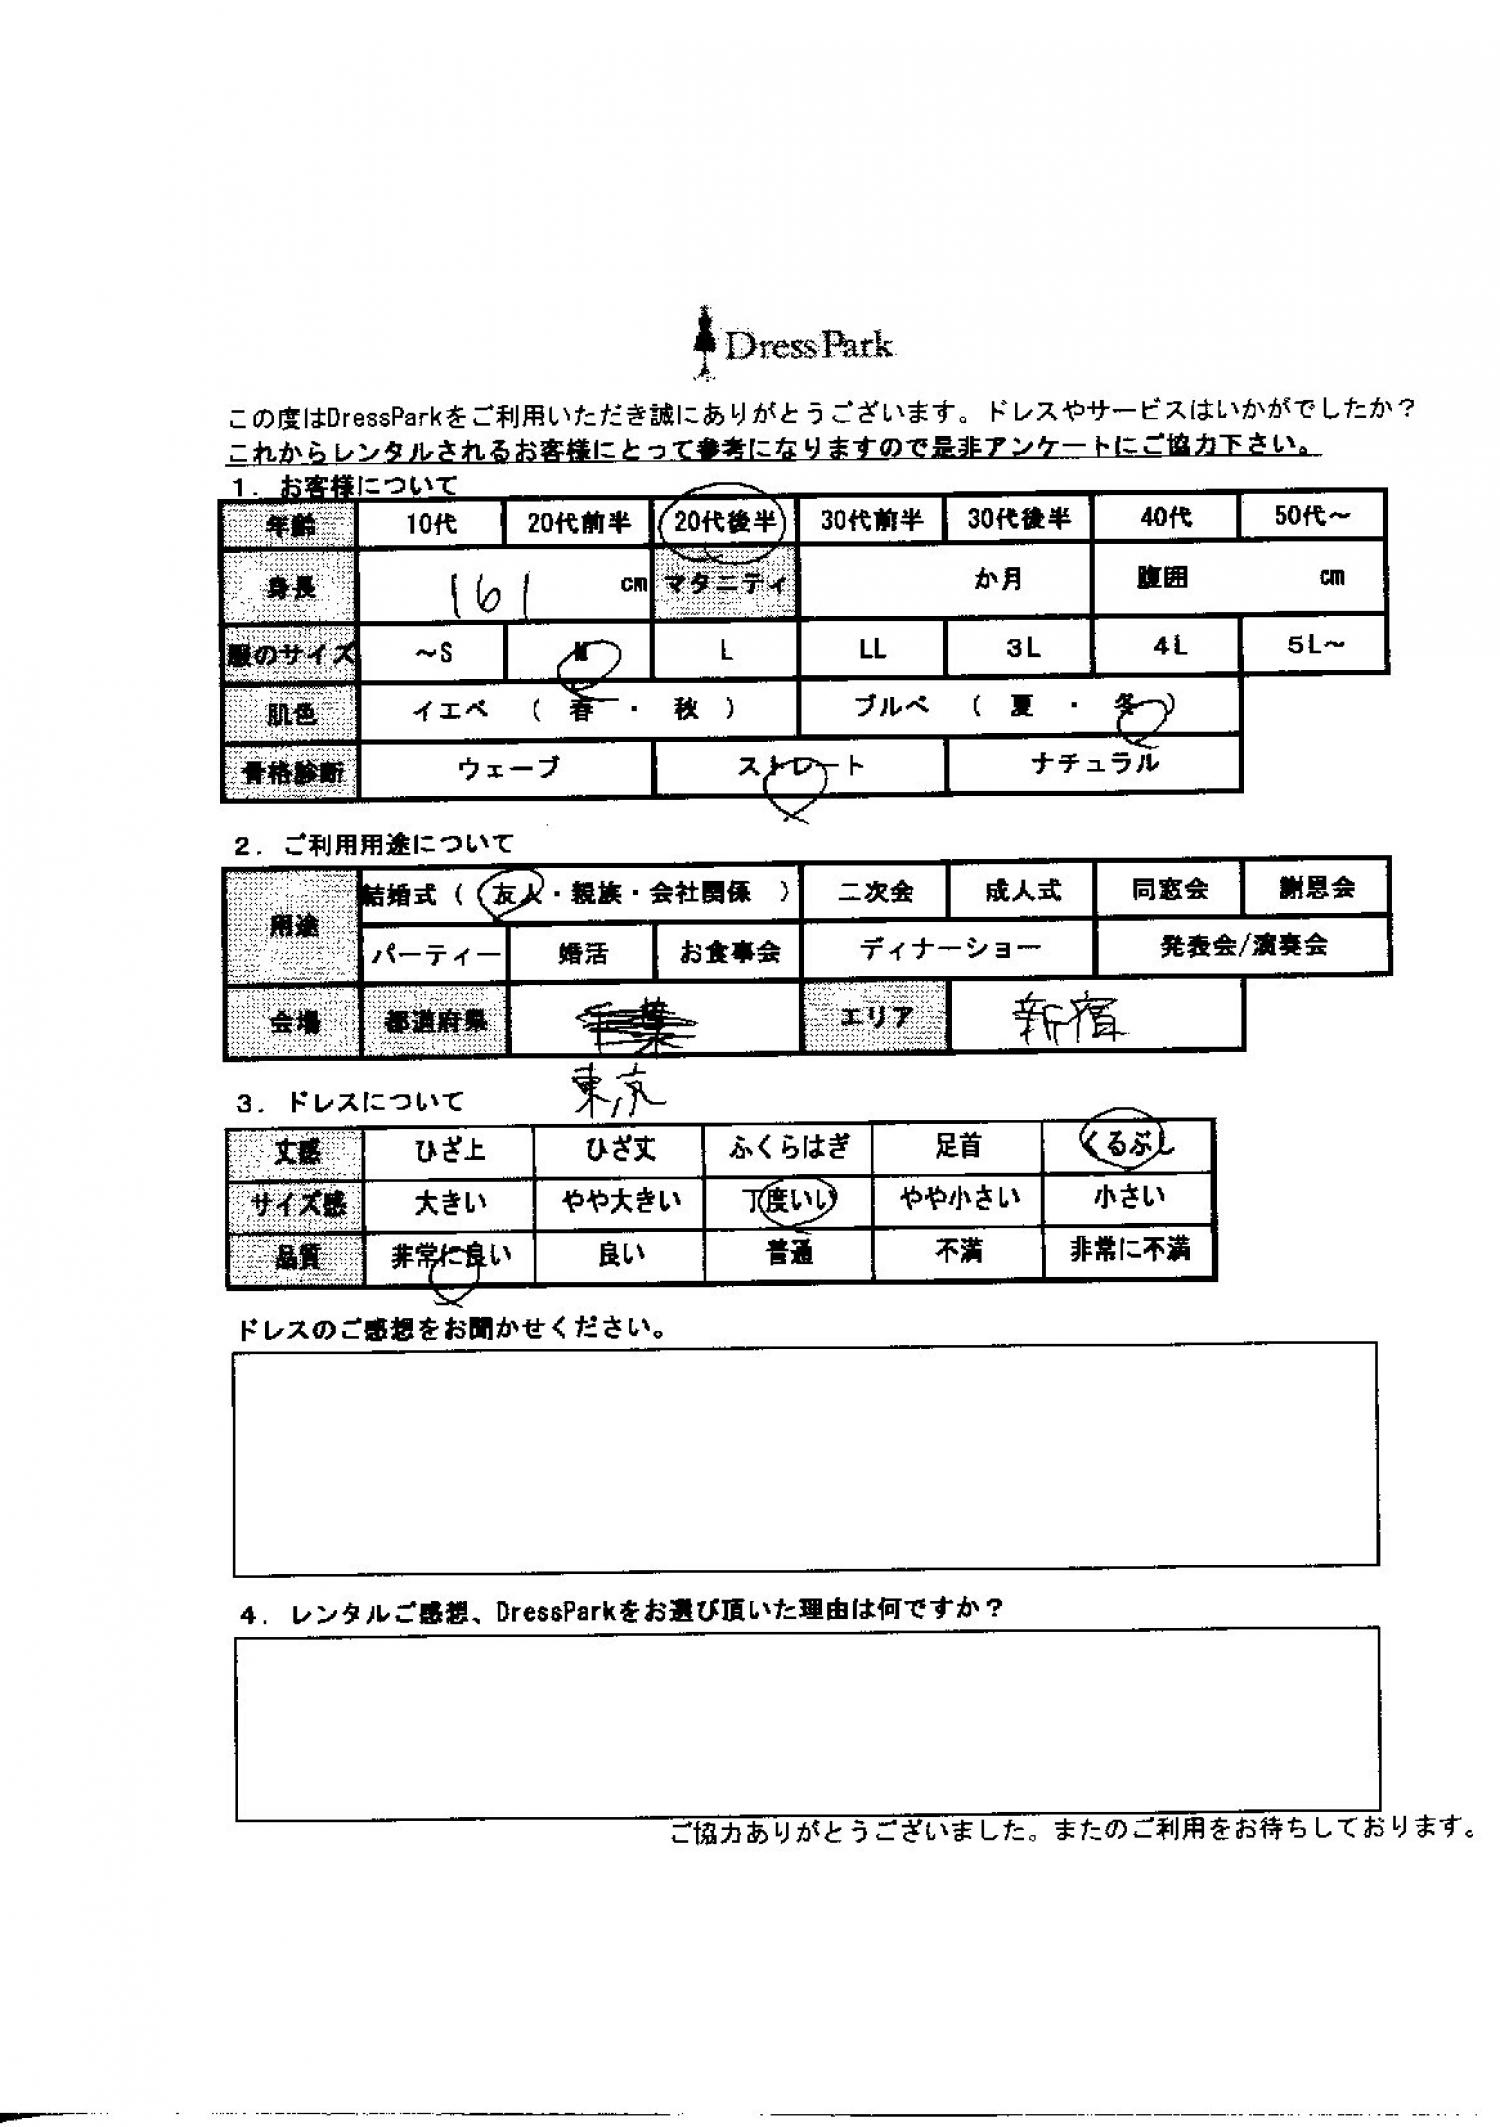 DressPark
この度はDressParkをご利用いただき誠にありがとうございます。ドレスやサービスはいかがでしたか？
これからレンタルされるお客様にとって参考になりますので是非アンケートにご協力下さい。
1. お客様について
年齢 10代 20代前半 20代後半 30代前半 30代後半 40代 50代～
身長 161 cm マタニティ か月 腹囲 cm
服のサイズ ～S M L LL 3L 4L 5L～
肌色 イエベ （ 春 ・ 秋 ） ブルベ （ 夏 ・ 冬 ）
骨格診断 ウェーブ ストレート ナチュラル
2. ご利用用途について
用途 結婚式（ 友人・親族・会社関係 ） 二次会 成人式 同窓会 謝恩会
パーティー 婚活 お食事会 ディナーショー 発表会/演奏会
会場 都道府県 千葉 エリア 新宿
東京
3. ドレスについて
丈感 ひざ上 ひざ丈 ふくらはぎ 足首 くるぶし
サイズ感 大きい やや大きい 丁度いい やや小さい 小さい
品質 非常に良い 良い 普通 不満 非常に不満
ドレスのご感想をお聞かせください。
4. レンタルご感想、DressParkをお選び頂いた理由は何ですか？
ご協力ありがとうございました。またのご利用をお待ちしております。